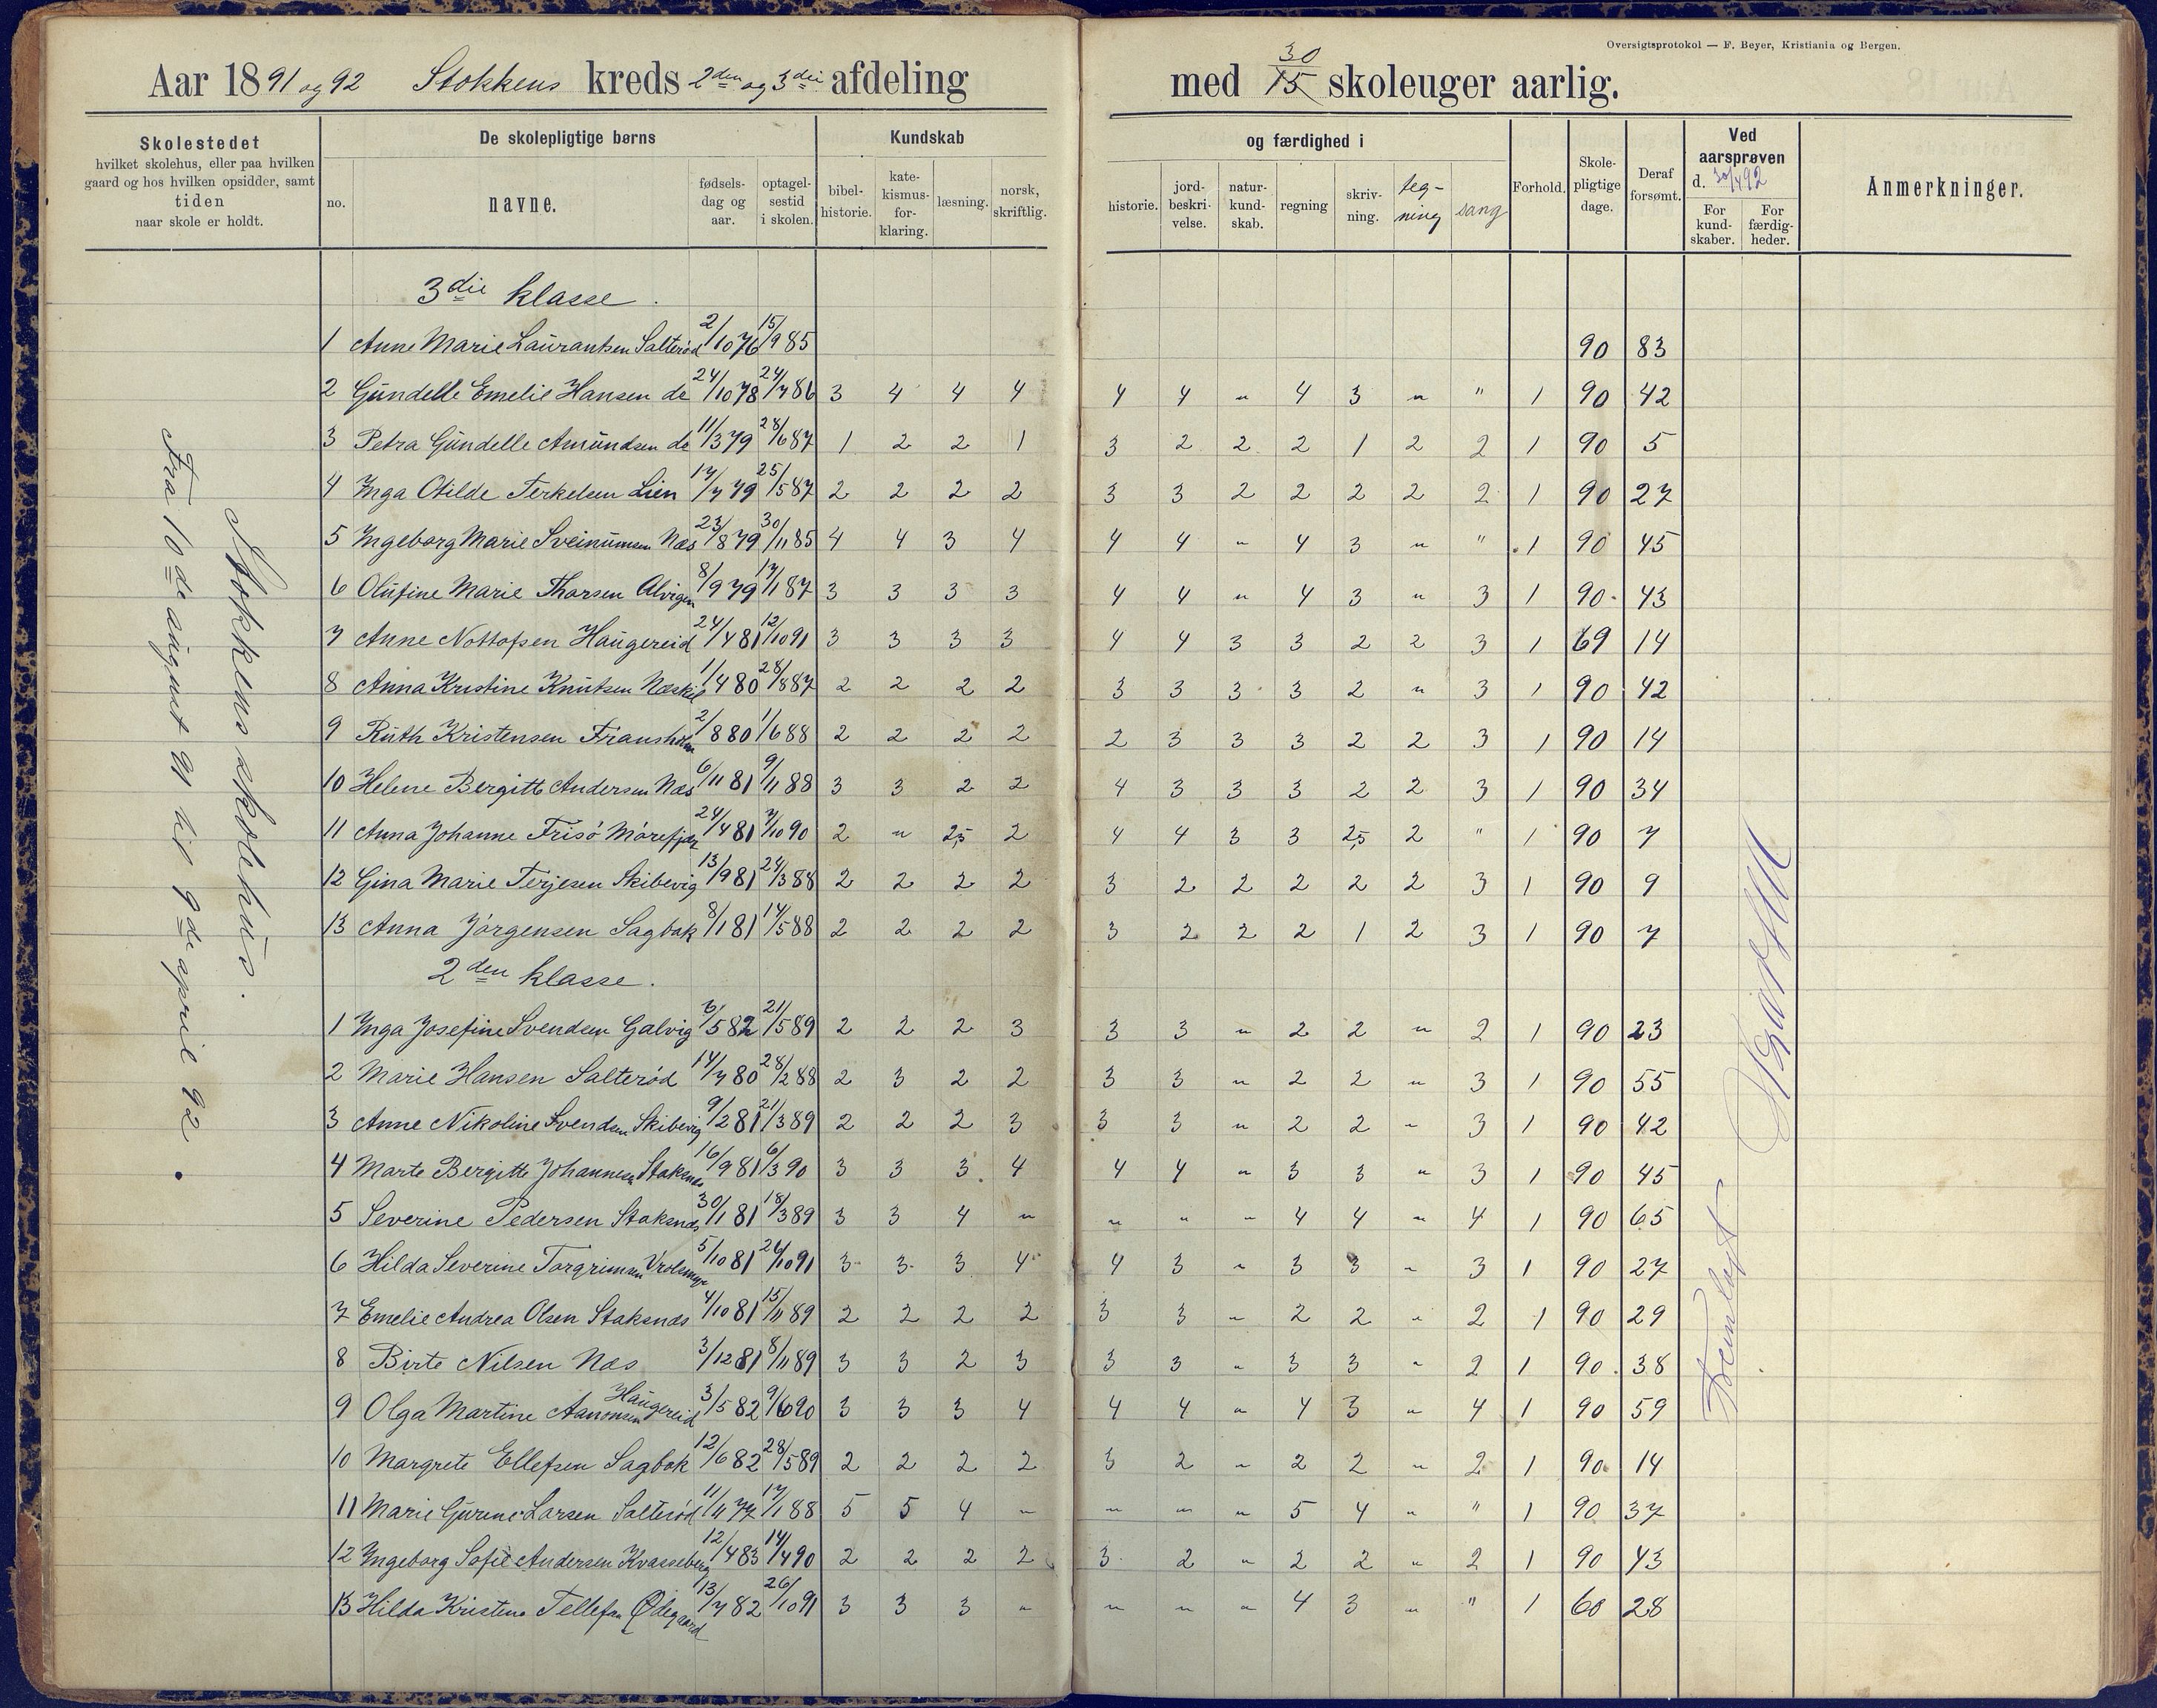 Oversigtsprotokol — F. Beyer, Kristiania og Bergen.
Aar 1891 og 92 Stokkens kreds 2den og 3die afdeling med 30/15 skoleuger aarlig.
Skolestedet
hvilket skolehus, eller paa hvilken
gaard og hos hvilken opsidder, samt
tiden
naar skole er holdt.
De skolepligtige børns
no.
navne.
fødsels-
dag og
aar.
optagel-
sestid
i skolen.
Kundskab
bibel-
historie.
kate-
kismus-
for-
klaring.
læsning.
norsk,
skriftlig.
og færdighed i
historie.
jord-
beskri-
velse.
natur-
kund-
skab.
regning
skriv-
ning.
teg-
ning
sang
Forhold.
Skole-
pligtige
dage.
Deraf
forsømt.
Ved
aarsprøven
d. 30/4 92
For
kund-
skaber.
For
færdig-
heder.
Anmerkninger.
Stokkens skolehus.
Fra 10de august 91 til 9de april 92.
3die klasse.
1 Anne Marie Laurantsen Salterød 2/10 76 15/9 85 90 83
2 Gundelle Emelie Hansen do 24/10 78 24/7 86 3 4 4 4 4 4 " 4 3 " " 1 90 42
3 Petra Gundelle Amundsen do 11/3 79 28/6 87 1 2 2 1 3 2 2 2 1 2 2 1 90 5
4 Inga Otilde Terkelsen Lien 17/7 79 25/5 87 2 2 2 2 3 3 2 2 2 2 2 1 90 27
5 Ingeborg Marie Sveinumsen Næs 23/8 79 30/11 85 4 4 3 4 4 4 " 4 3 " " 1 90 45
6 Olufine Marie Thorsen Alvigen 8/9 79 17/1 87 3 3 3 3 4 4 " 4 3 " 3 1 90 43
7 Anne Nottofsen Haugereid 24/4 81 12/10 91 3 3 3 3 4 4 3 3 2 2 3 1 69 14
8 Anna Kristine Knutsen Næskil 1/4 80 28/8 87 2 2 2 2 3 3 3 3 2 " 3 1 90 42
9 Ruth Kristensen Fransholm 2/8 80 1/6 88 2 2 2 2 2 3 3 3 2 2 3 1 90 14
10 Helene Bergitte Andersen Næs 6/11 81 9/11 88 3 3 2 2 4 3 3 3 2 2 3 1 90 34
11 Anna Johanne Frisø Mørefjær 24/4 81 7/10 90 2 " 2,5 2 4 4 3 3 2,5 2 " 1 90 7
12 Gina Marie Terjesen Skibevig 13/9 81 24/3 88 2 2 2 2 3 2 2 2 2 2 3 1 90 9
13 Anna Jørgensen Sagbak 8/1 81 14/5 88 2 2 2 2 3 2 2 2 1 2 3 1 90 7
2den klasse.
1 Inga Josefine Svendsen Galvig 3/5 82 21/5 89 2 2 2 3 3 3 " 2 2 " 2 1 90 23
2 Marie Hansen Salterød 14/7 80 28/2 88 2 3 2 2 3 3 " 2 2 " 3 1 90 55
3 Anne Nikoline Svendsen Skibevig 9/2 81 21/3 89 2 2 2 3 3 3 " 2 2 " 3 1 90 42
4 Marte Bergitte Johannesen Staksnæs 16/9 81 6/3 90 3 3 3 4 4 4 " 3 3 " 3 1 90 45
5 Severine Pedersen Staksnæs 30/1 81 18/3 89 3 3 4 " " " " 4 4 " 4 1 90 65
6 Hilda Severine Torgrimsen 5/10 81 26/10 91 3 3 3 4 4 3 " 3 3 " 3 1 90 27
7 Emelie Andrea Olsen Staksnæs 4/10 81 15/11 89 2 2 2 2 3 3 " 2 2 " 2 1 90 29
8 Birte Nilsen Næs 3/12 81 8/11 89 3 3 2 3 3 3 " 3 3 " 2 1 90 38
9 Olga Martine Aanonsen Haugereid 3/5 82 9/6 90 3 3 3 4 4 4 " 4 3 " 4 1 90 59
10 Margrete Ellefsen Sagbak 12/6 82 28/5 89 2 2 2 2 3 2 " 2 2 " 2 1 90 14
11 Marie Gurine Larsen Salterød 11/11 77 17/1 88 5 5 4 " " " " 5 4 " " 1 90 37
12 Ingeborg Sofie Andersen Kvasseberg 12/4 83 14/4 90 2 2 2 2 3 2 " 2 2 " 2 1 90 43
13 Hilda Kristine Tellefsen Ødegaard 13/7 82 26/10 91 3 3 3 " " " " 4 3 " " 1 60 28
Fremlagt